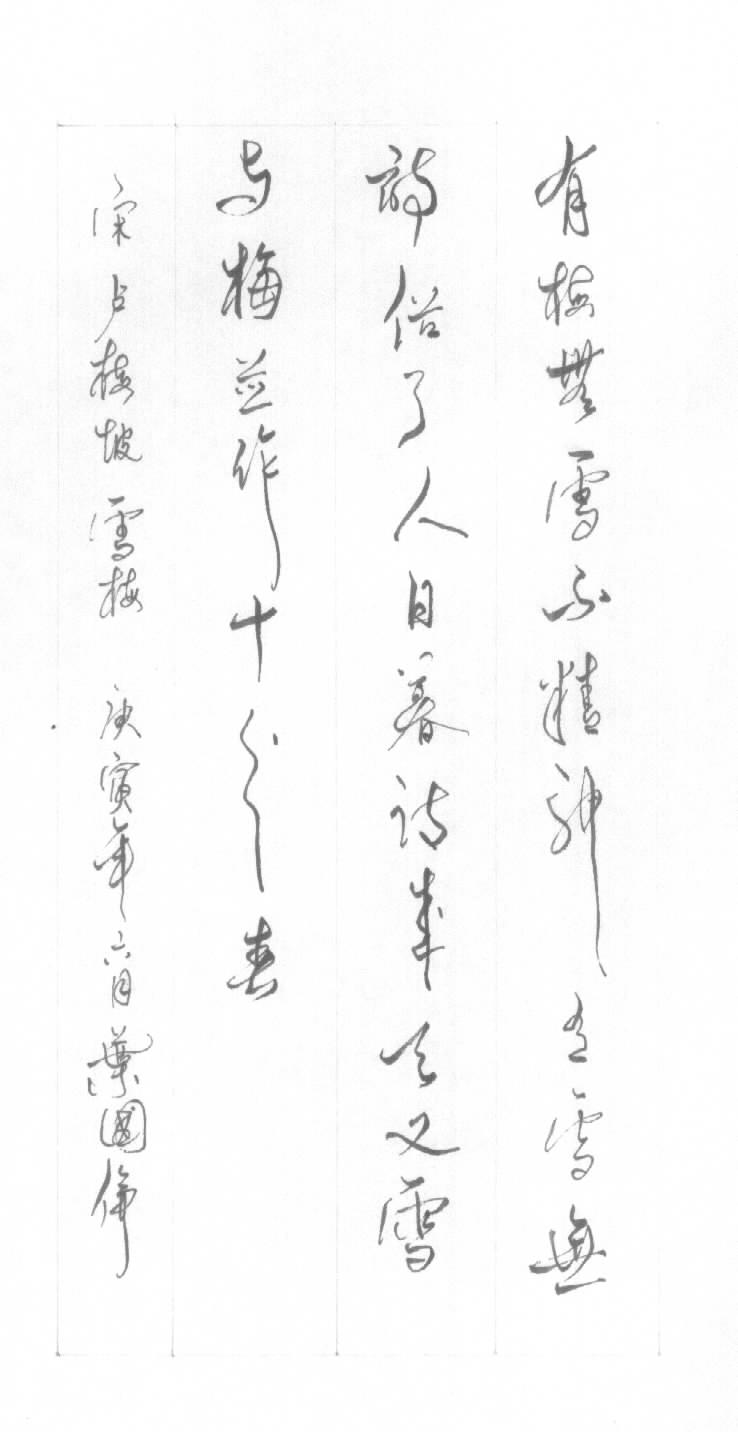 有梅無雪不精神有雪無
詩俗了人日暮詩成天又雪
与梅並作十分春
宋卢梅坡雪梅 庚寅年六月葉國偉